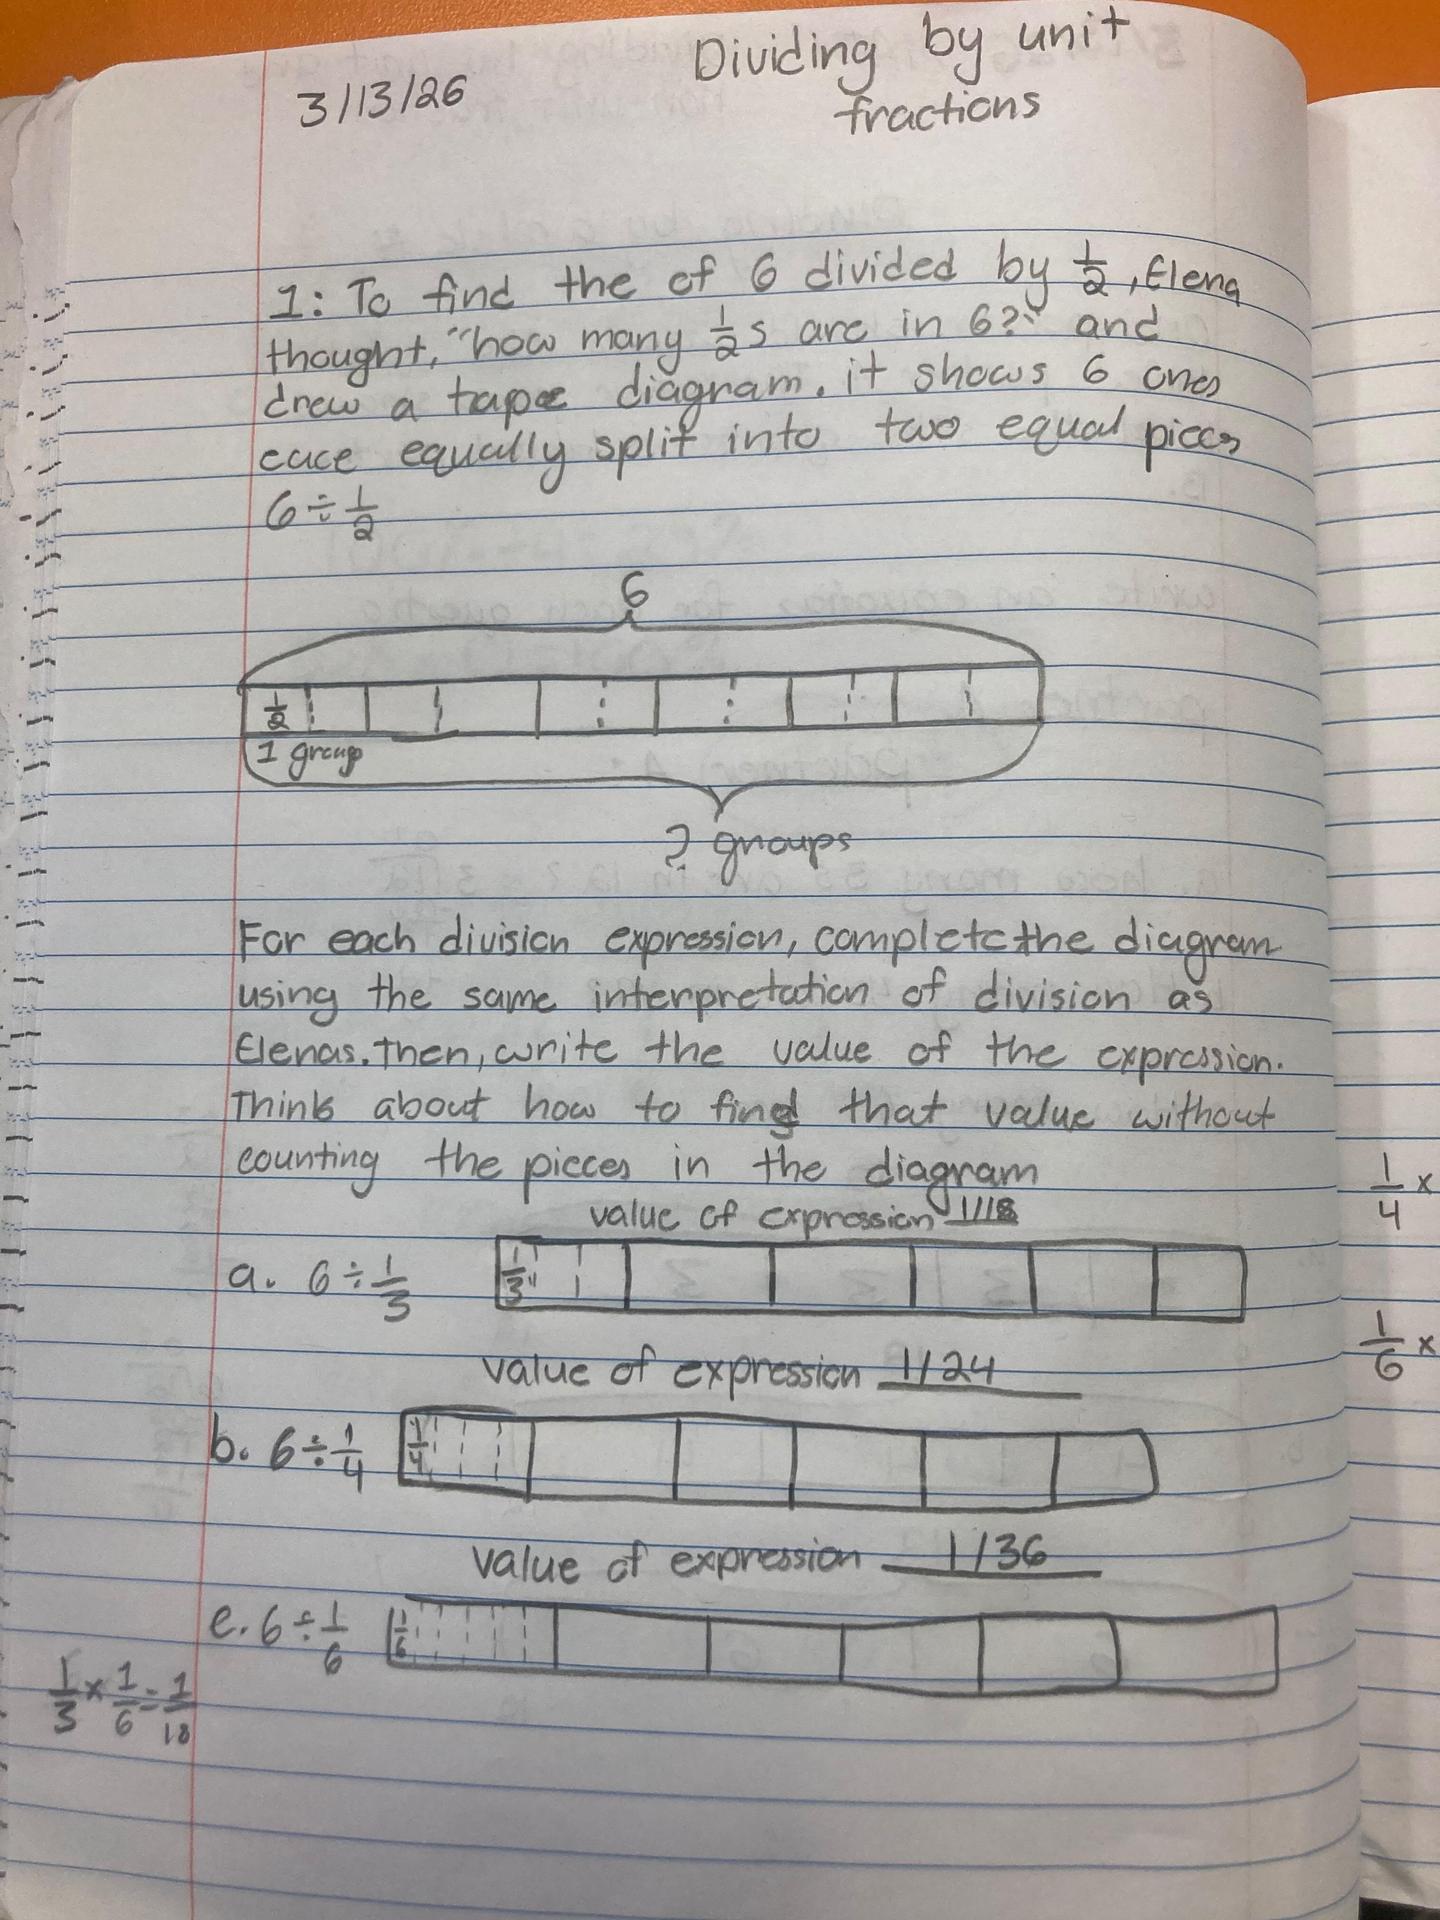 Dividing by unit
fractions
3/13/26
1: To find the of 6 divided by 1/2, Elena
thought, "how many 1/2 s are in 6?" and
drew a tape diagram. it shows 6 ones
eace equally split into two equal pieces
6 ÷ 1/2
6
1/2
1 group
? groups
For each division expression, complete the diagram
using the same interpretation of division as
Elenas. then, write the value of the expression.
Think about how to find that value without
counting the pieces in the diagram
value of expression 1/18
a. 6 ÷ 1/3
1/3
value of expression 1/24
b. 6 ÷ 1/4
1/4
value of expression 1/36
c. 6 ÷ 1/6
1/6
1/3 × 1/6 = 1/18
1/4 ×
1/6 ×